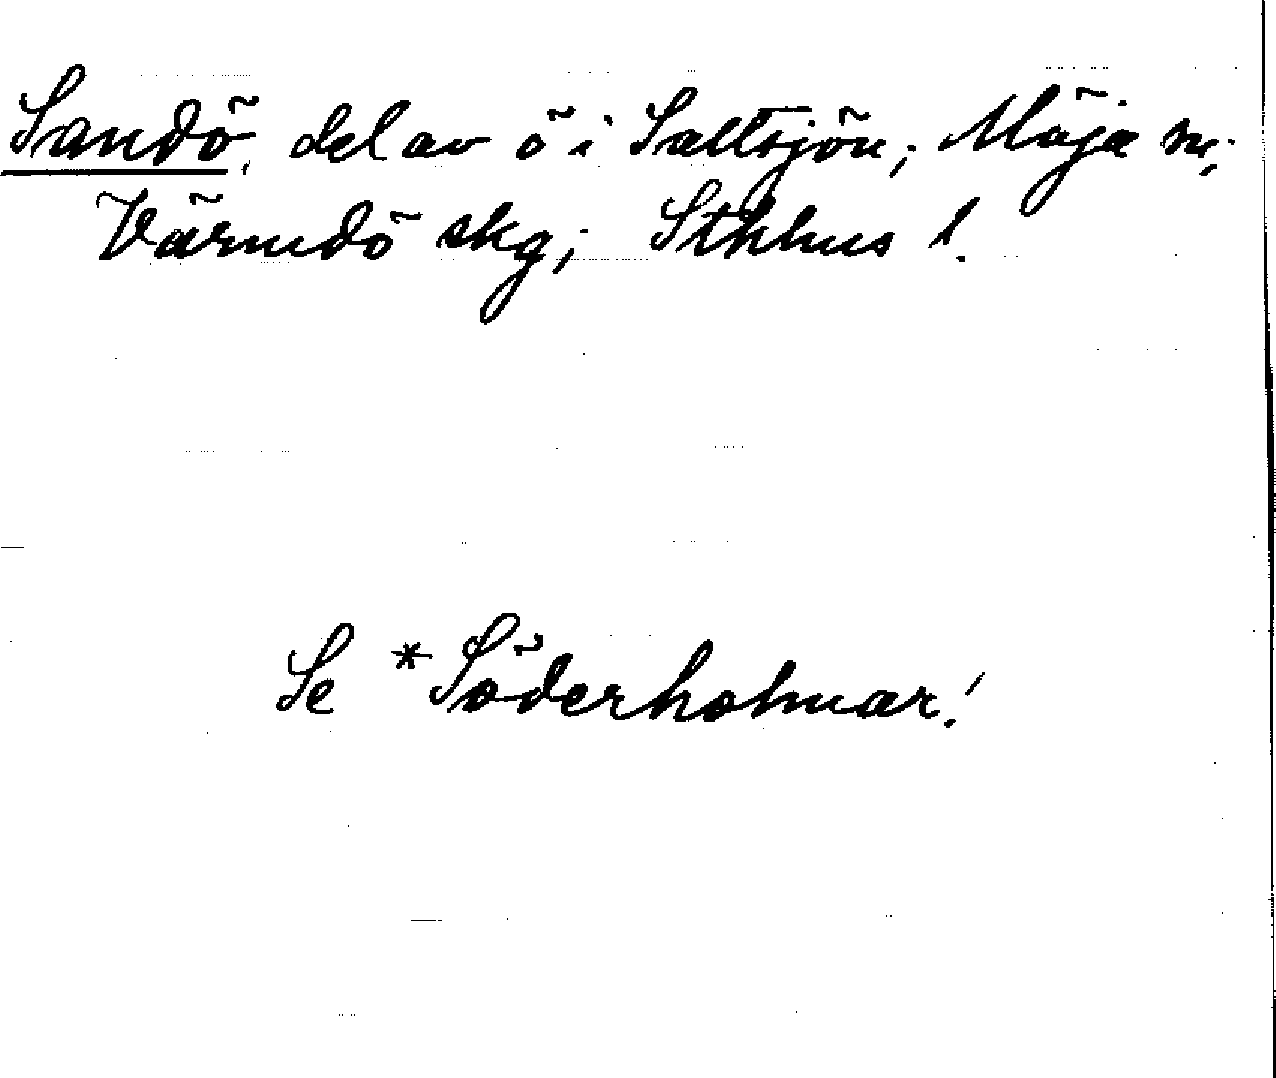 Sandö, del av ö i Saltsjön; Möja sn;
Värmdö skg; Sthlms l.
Se *Söderholmar!